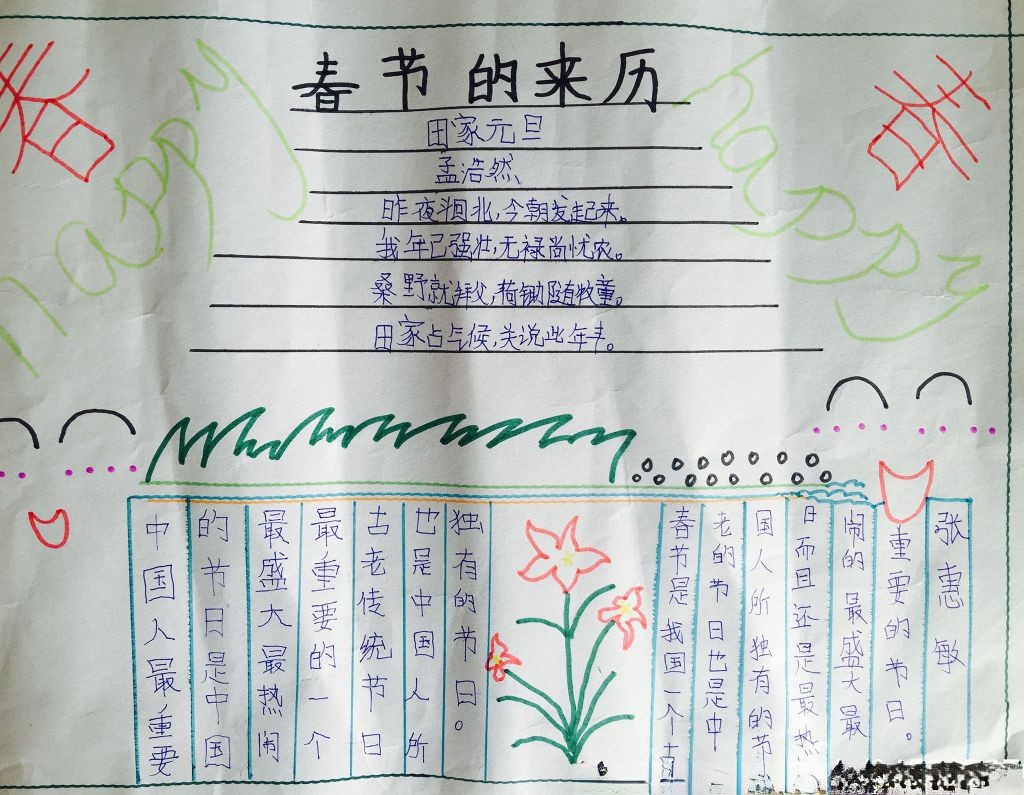 春
happy
春节的来历
田家元旦
孟浩然
昨夜斗回北,今朝发起来。
我年已强壮,无禄尚忧农。
桑野就拜父,荷锄随牧童。
田家占气候,共说此年丰。
春
happy
中国人最重要
的节日是中国
最盛大最热闹
最重要的一个
古老传统节日
也是中国人所
独有的节日。
春节是我国一个古
老的节日也是中
国人所独有的节
日而且还是最热
闹的最盛大最
重要的节日。
张惠敏